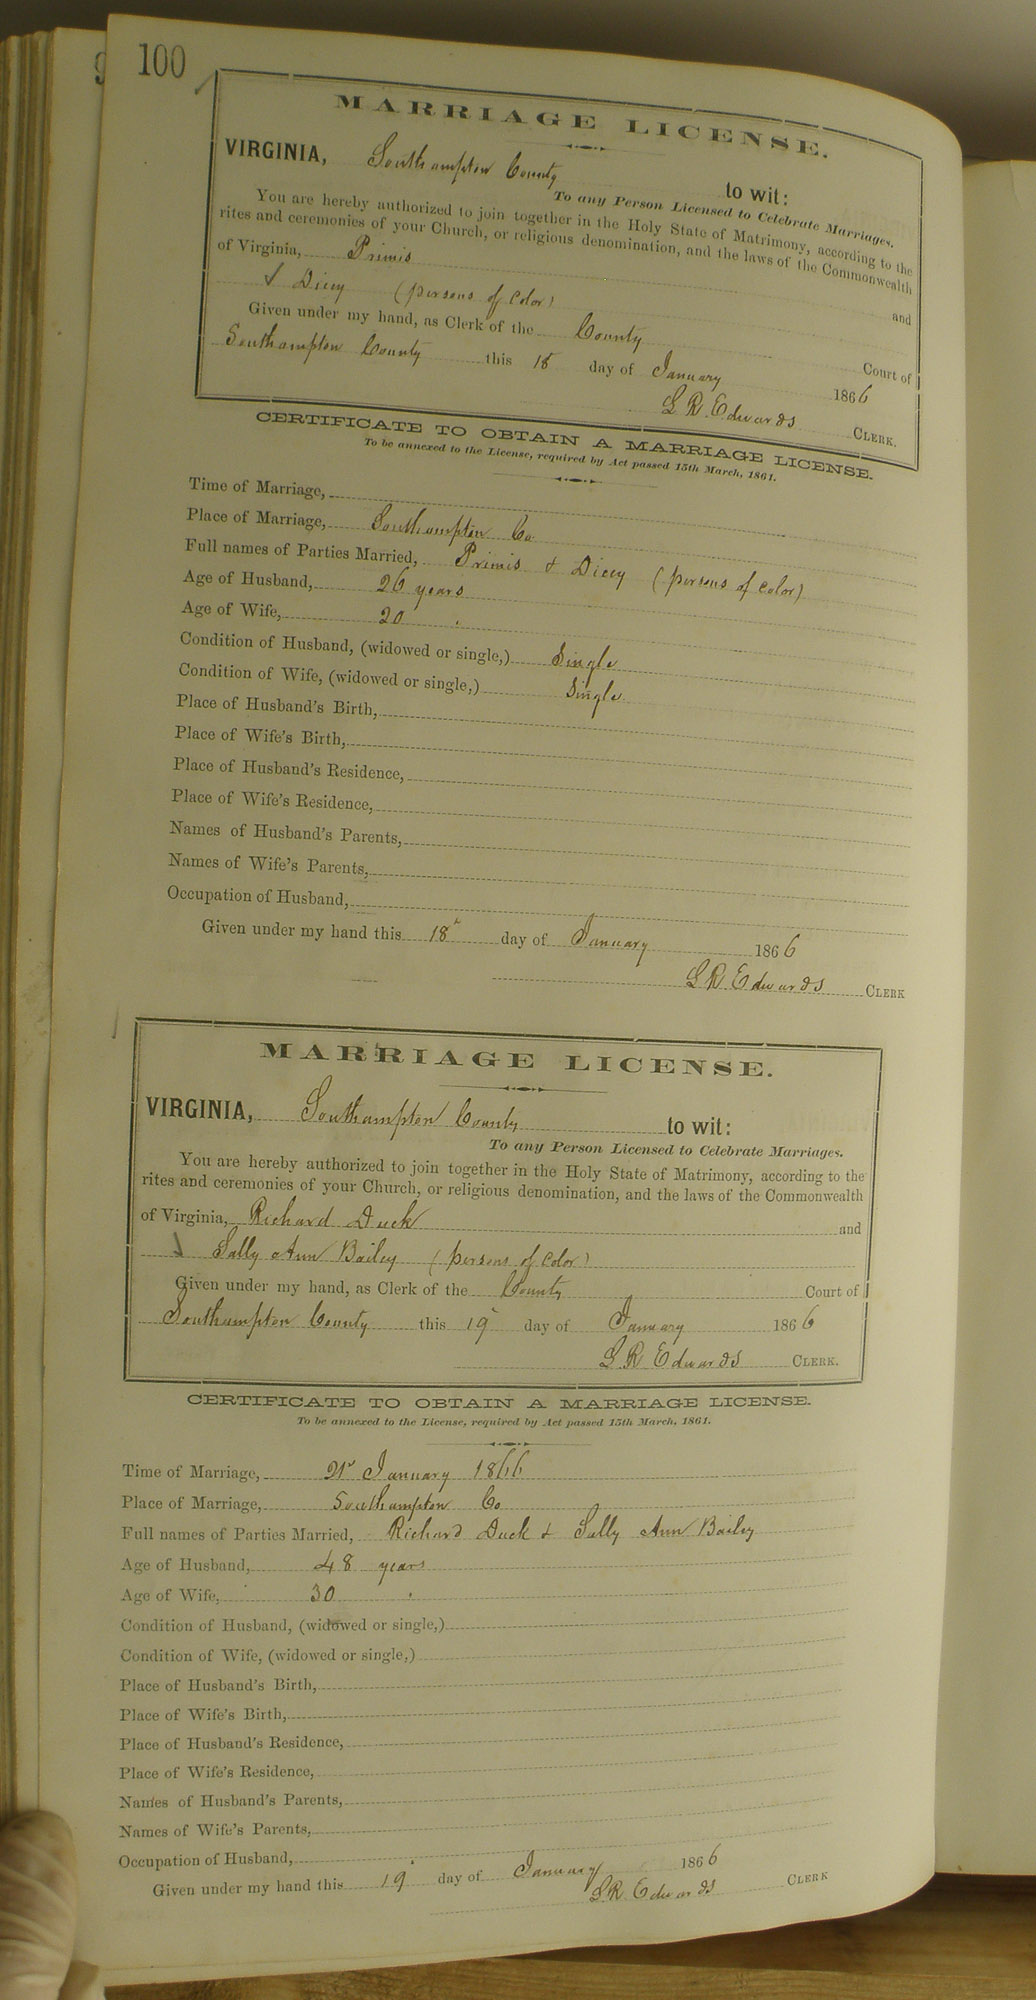 100
MARRIAGE LICENSE.
VIRGINIA, Southampton County to wit:
To any Person Licensed to Celebrate Marriages.
You are hereby authorized to join together in the Holy State of Matrimony, according to the
rites and ceremonies of your Church, or religious denomination, and the laws of the Commonwealth
of Virginia, Primis and
Dicey (persons of Color)
Given under my hand, as Clerk of the County Court of
Southampton County this 18 day of January 1866
L R Edwards CLERK.
CERTIFICATE TO OBTAIN A MARRIAGE LICENSE.
To be annexed to the License, required by Act passed 15th March, 1861.
Time of Marriage,
Place of Marriage, Southampton Co
Full names of Parties Married, Primis & Dicey (persons of Color)
Age of Husband, 26 years
Age of Wife, 20 "
Condition of Husband, (widowed or single,) Single
Condition of Wife, (widowed or single,) Single
Place of Husband's Birth,
Place of Wife's Birth,
Place of Husband's Residence,
Place of Wife's Residence,
Names of Husband's Parents,
Names of Wife's Parents,
Occupation of Husband,
Given under my hand this 18 day of January 1866
L R Edwards CLERK
MARRIAGE LICENSE.
VIRGINIA, Southampton County to wit:
To any Person Licensed to Celebrate Marriages.
You are hereby authorized to join together in the Holy State of Matrimony, according to the
rites and ceremonies of your Church, or religious denomination, and the laws of the Commonwealth
of Virginia, Richard Duck and
Sally Ann Bailey (persons of Color)
Given under my hand, as Clerk of the County Court of
Southampton County this 19 day of January 1866
L R Edwards CLERK.
CERTIFICATE TO OBTAIN A MARRIAGE LICENSE.
To be annexed to the License, required by Act passed 15th March, 1861.
Time of Marriage, 21st January 1866
Place of Marriage, Southampton Co
Full names of Parties Married, Richard Duck & Sally Ann Bailey
Age of Husband, 48 years
Age of Wife, 30 "
Condition of Husband, (widowed or single,)
Condition of Wife, (widowed or single,)
Place of Husband's Birth,
Place of Wife's Birth,
Place of Husband's Residence,
Place of Wife's Residence,
Names of Husband's Parents,
Names of Wife's Parents,
Occupation of Husband,
Given under my hand this 19 day of January 1866
L R Edwards CLERK